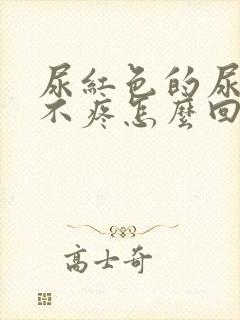 尿紅色的尿
不疼怎麼回
高士奇